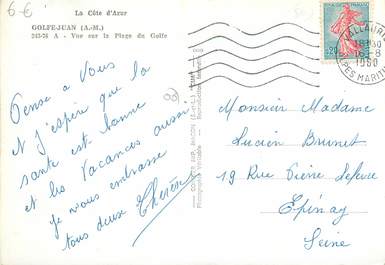 6-€
La Côte d'Azur
GOLFE-JUAN (A.-M.)
243-76 A - Vue sur la Plage du Golfe
0,20
VALLAURIS
18H30
16-8
1960
ALPES MARITIMES
Pense a Vous
et j'espère que la
santé est bonne
et les Vacances aussi
je vous embrasse
tous deux Thérèse
Monsieur Madame
Lucien Brunet
19 Rue Pierre Lefeuve
Epinay
Seine